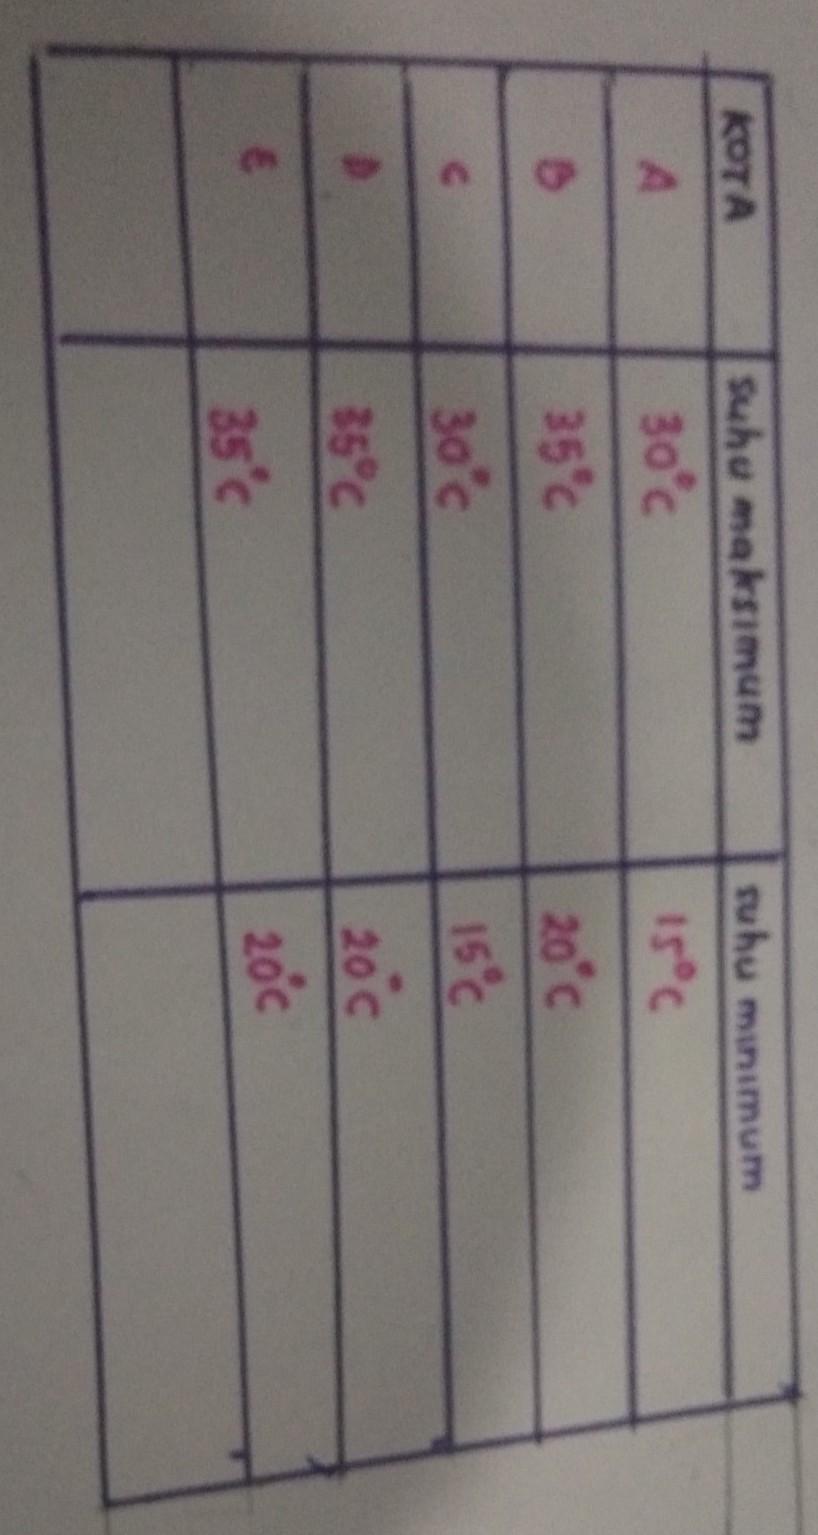 KOTA suhu maksimum suhu minimum
A 30°C 15°C
B 35°C 20°C
C 30°C 15°C
D 35°C 20°C
E 35°C 20°C